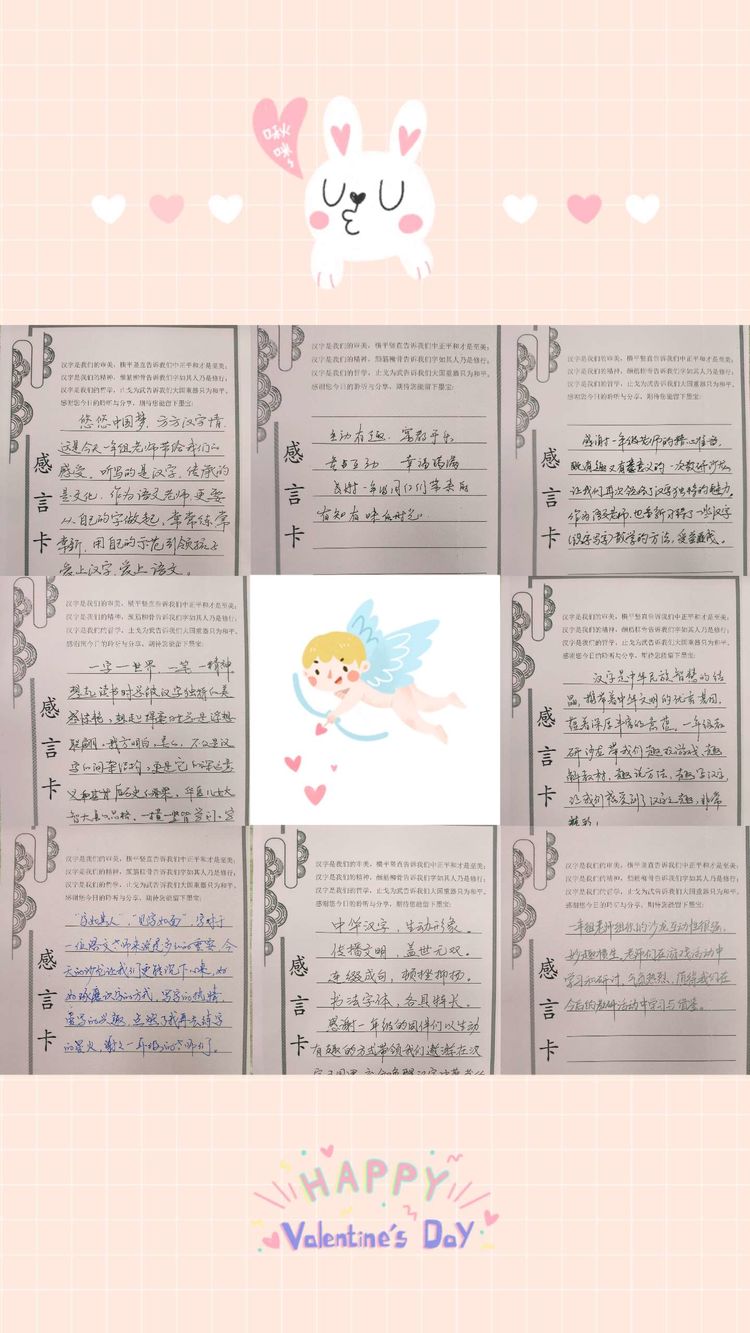 啾咪~
汉字是我们的审美，横平竖直告诉我们中正平和才是至美；
汉字是我们的精神，颜筋柳骨告诉我们字如其人乃是修行；
汉字是我们的哲学，止戈为武告诉我们大国重器只为和平。
感谢您今日的聆听与分享，期待您能留下墨宝：
感言卡
悠悠中国梦，方方汉字情.
这是今天一年组老师带给我们的
感受。听写的是汉字，传承的
是文化。作为语文老师，更要
从自己的字做起，常常练常
常新，用自己的示范引领孩子
爱上汉字，爱上语文。
汉字是我们的审美，横平竖直告诉我们中正平和才是至美；
汉字是我们的精神，颜筋柳骨告诉我们字如其人乃是修行；
汉字是我们的哲学，止戈为武告诉我们大国重器只为和平。
感谢您今日的聆听与分享，期待您能留下墨宝：
感言卡
互动有趣，寓教于乐
互动 幸福满满
感谢一年级同仁们带来的
有知有味的时光。
汉字是我们的审美，横平竖直告诉我们中正平和才是至美；
汉字是我们的精神，颜筋柳骨告诉我们字如其人乃是修行；
汉字是我们的哲学，止戈为武告诉我们大国重器只为和平。
感谢您今日的聆听与分享，期待您能留下墨宝：
感言卡
感谢一年级老师的精心准备，
既有趣又有意义的一次教研沙龙
让我们再次领略了汉字独特的魅力。
作为语文老师，也重新习得了一些汉字
(识字写字)教学的方法，受益匪浅。
汉字是我们的审美，横平竖直告诉我们中正平和才是至美；
汉字是我们的精神，颜筋柳骨告诉我们字如其人乃是修行；
汉字是我们的哲学，止戈为武告诉我们大国重器只为和平。
感谢您今日的聆听与分享，期待您能留下墨宝：
感言卡
一字一世界，一笔一精神
想起读书时写汉字独特的美
我方明白，不仅是汉
字的间架结构，更是它的深远意
汉字是我们的审美，横平竖直告诉我们中正平和才是至美；
汉字是我们的精神，颜筋柳骨告诉我们字如其人乃是修行；
汉字是我们的哲学，止戈为武告诉我们大国重器只为和平。
感谢您今日的聆听与分享，期待您能留下墨宝：
感言卡
汉字是中华民族智慧的结
晶，携带着中华文明的优秀基因，
蕴着深厚丰富的意蕴。一年级教
研沙龙带我们趣玩游戏，趣
解教材，趣说方法，趣写汉字，
让我们感受到了汉字之趣，非常
精彩！
汉字是我们的审美，横平竖直告诉我们中正平和才是至美；
汉字是我们的精神，颜筋柳骨告诉我们字如其人乃是修行；
汉字是我们的哲学，止戈为武告诉我们大国重器只为和平。
感谢您今日的聆听与分享，期待您能留下墨宝：
感言卡
“字如其人”，“见字如面”，字对于
一位语文老师来说是多么的重要，今
天的沙龙让我们更能沉下心来，好
好琢磨识字的方式，写字的
书写的乐趣，点燃了我再去练字
的星火，谢谢一年级的老师们。
汉字是我们的审美，横平竖直告诉我们中正平和才是至美；
汉字是我们的精神，颜筋柳骨告诉我们字如其人乃是修行；
汉字是我们的哲学，止戈为武告诉我们大国重器只为和平。
感谢您今日的聆听与分享，期待您能留下墨宝：
感言卡
中华汉字，生动形象。
传播文明，盖世无双。
连缀成句，顿挫抑扬。
书法字体，各具特长。
感谢一年级的同伴们以生动
有趣的方式带领我们遨游在汉
汉字是我们的审美，横平竖直告诉我们中正平和才是至美；
汉字是我们的精神，颜筋柳骨告诉我们字如其人乃是修行；
汉字是我们的哲学，止戈为武告诉我们大国重器只为和平。
感谢您今日的聆听与分享，期待您能留下墨宝：
感言卡
一年组老师组织的沙龙互动性很强，
妙趣横生，老师们在游戏活动中
学习和研讨，气氛热烈，值得我们在
今后的教研活动中学习与借鉴。
HAPPY
Valentine's Day